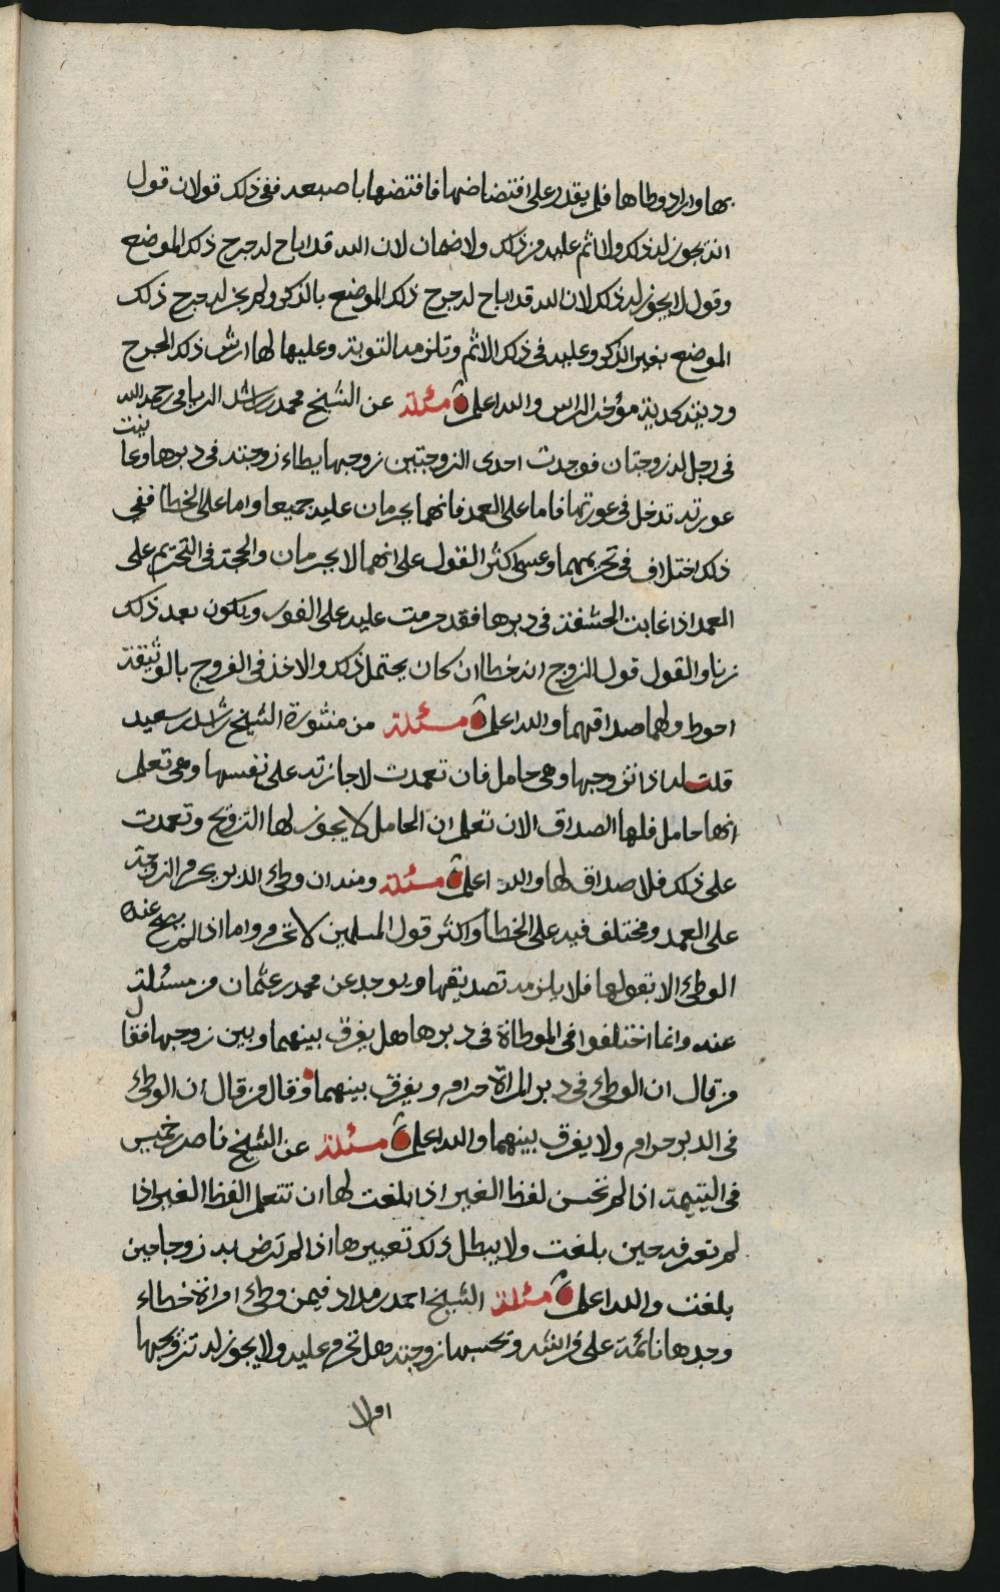 بها واراد وطاها فلم يقدر على افتضاضها فافتضها باصبعه ففي ذلك قولان قول
انه يجوز له ذلك ولا اثم عليه من ذلك ولا ضمان لان الله قد اباح له جرح ذلك الموضع
وقول لا يجوز له ذلك لان الله قد اباح له جرح ذلك الموضع بالذكر ولم يجز له جرح ذلك
الموضع بغير الذكر وعليه في ذلك الاثم وتلزمه التوبة وعليها لها ارش ذلك الجرح
وديته كدية مؤخر الراس والله اعلم مسئلة عن الشيخ محمد بن راشد الريامي رحمه الله
في رجل له زوجتان فوجدت احدى الزوجتين زوجها يطاء زوجته في دبرها وعاينت
عورته تدخل في عورتها فاما على العمد فانهما يحرمان عليه جميعا واما على الخطا ففي
ذلك اختلاف في تحريمهما وعسى اكثر القول على انهما لا يحرمان والحجة في التحريم على
العمد اذا غابت الحشفة في دبرها فقد حرمت عليه على الفور ويكون بعد ذلك
زنا والقول قول الزوج انه خطا ان كان يحتمل ذلك والاخذ في الفروج بالوثيقة
احوط ولهما صداقهما والله اعلم مسئلة من منثورة الشيخ راشد بن سعيد
قلت له اذا تزوجها وهي حامل فان تعمدت لاجازته على نفسها وهي تعلم
انها حامل فلها الصداق الا ان تعلم ان الحامل لا يجوز لها التزويج وتعمدت
على ذلك فلا صداق لها والله اعلم مسئلة ومنه ان وطئ الدبر يحرم الزوجة
على العمد ومختلف فيه على الخطا واكثر قول المسلمين لا تحرم واما اذا لم يصح عنده
الوطئ الا بقولها فلا يلزمه تصديقها ويوجد عن محمد بن عثمان ومن مسئلة
عنه وانما اختلفوا في الموطاة في دبرها هل يفرق بينهما وبين زوجها فقال
من قال ان الوطئ في دبر المراة حرام ويفرق بينهما وقال من قال ان الوطئ
في الدبر حرام ولا يفرق بينهما والله اعلم مسئلة عن الشيخ ناصر بن خميس
في اليتيمة اذا لم تحسن لفظ الغير اذا بلغت لها ان تتعلم الفظ الغير اذا
لم تعرفه حين بلغت ولا يبطل ذلك تغييرها اذا لم ترض به زوجا حين
بلغت والله اعلم مسئلة الشيخ احمد بن مداد فيمن وطئ امراة خطاء
وجدها نائمة على فراشه وتحسبها زوجته هل تحرم عليه ولا يجوز له تزويجها
ام لا